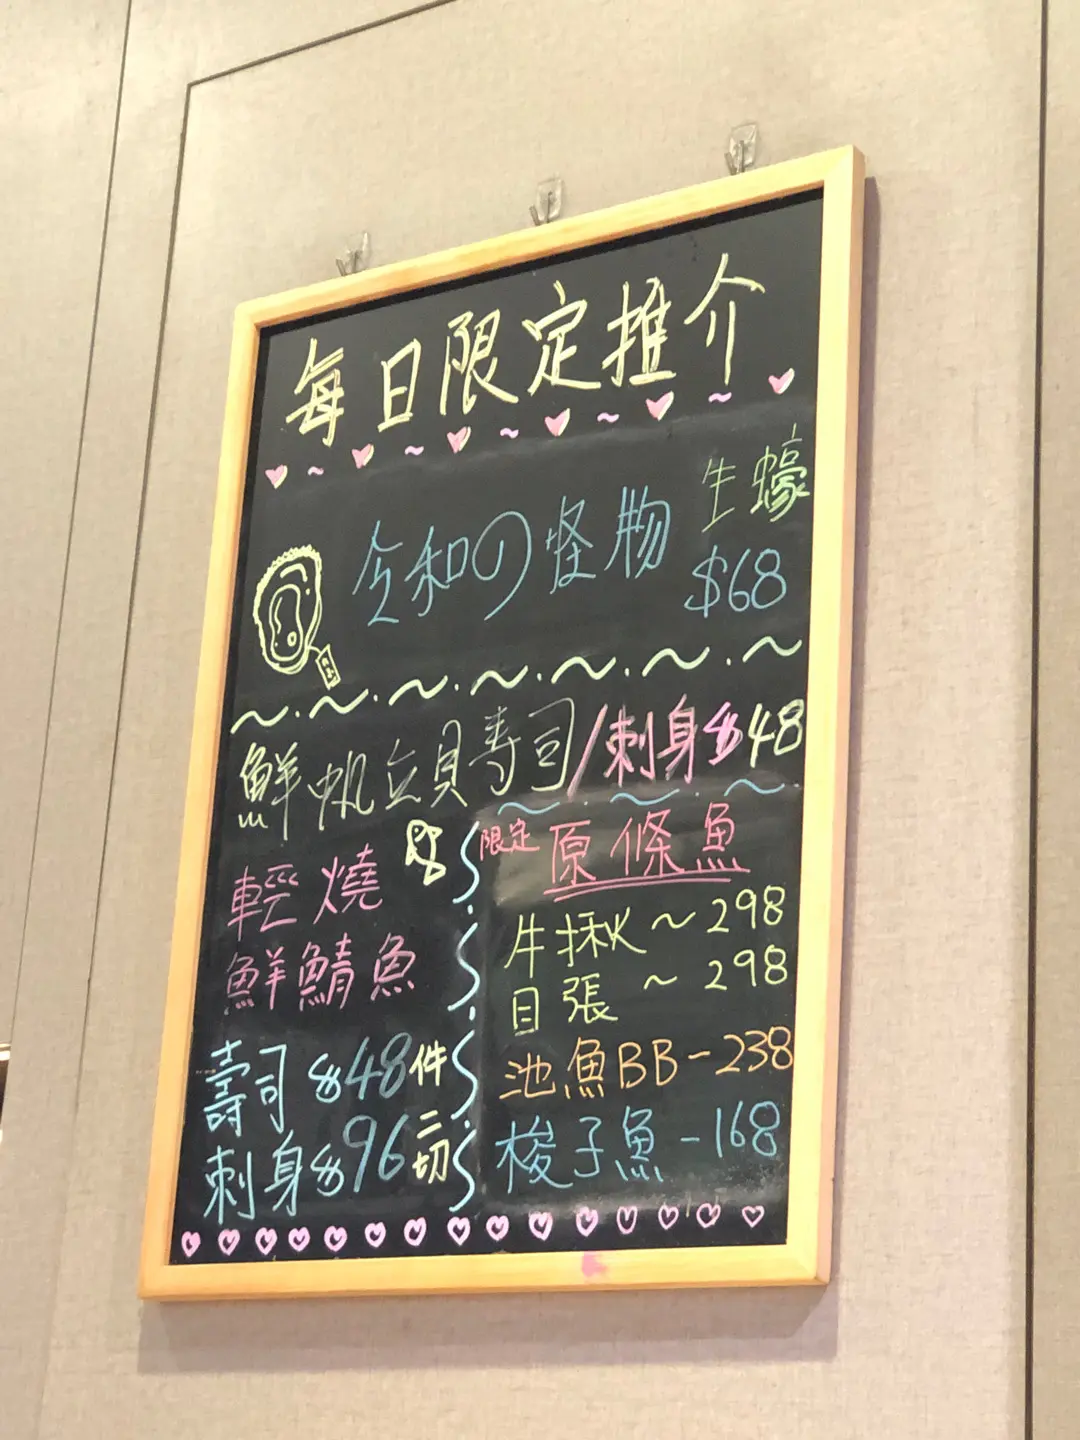 每日限定推介
生蠔
令和の怪物
$68
鮮帆立貝寿司/刺身$48
輕燒
鮮鯖魚
壽司$48件
刺身$96二切
限定原條魚
牛揪~298
目張~298
池魚BB-238
梭子魚-168